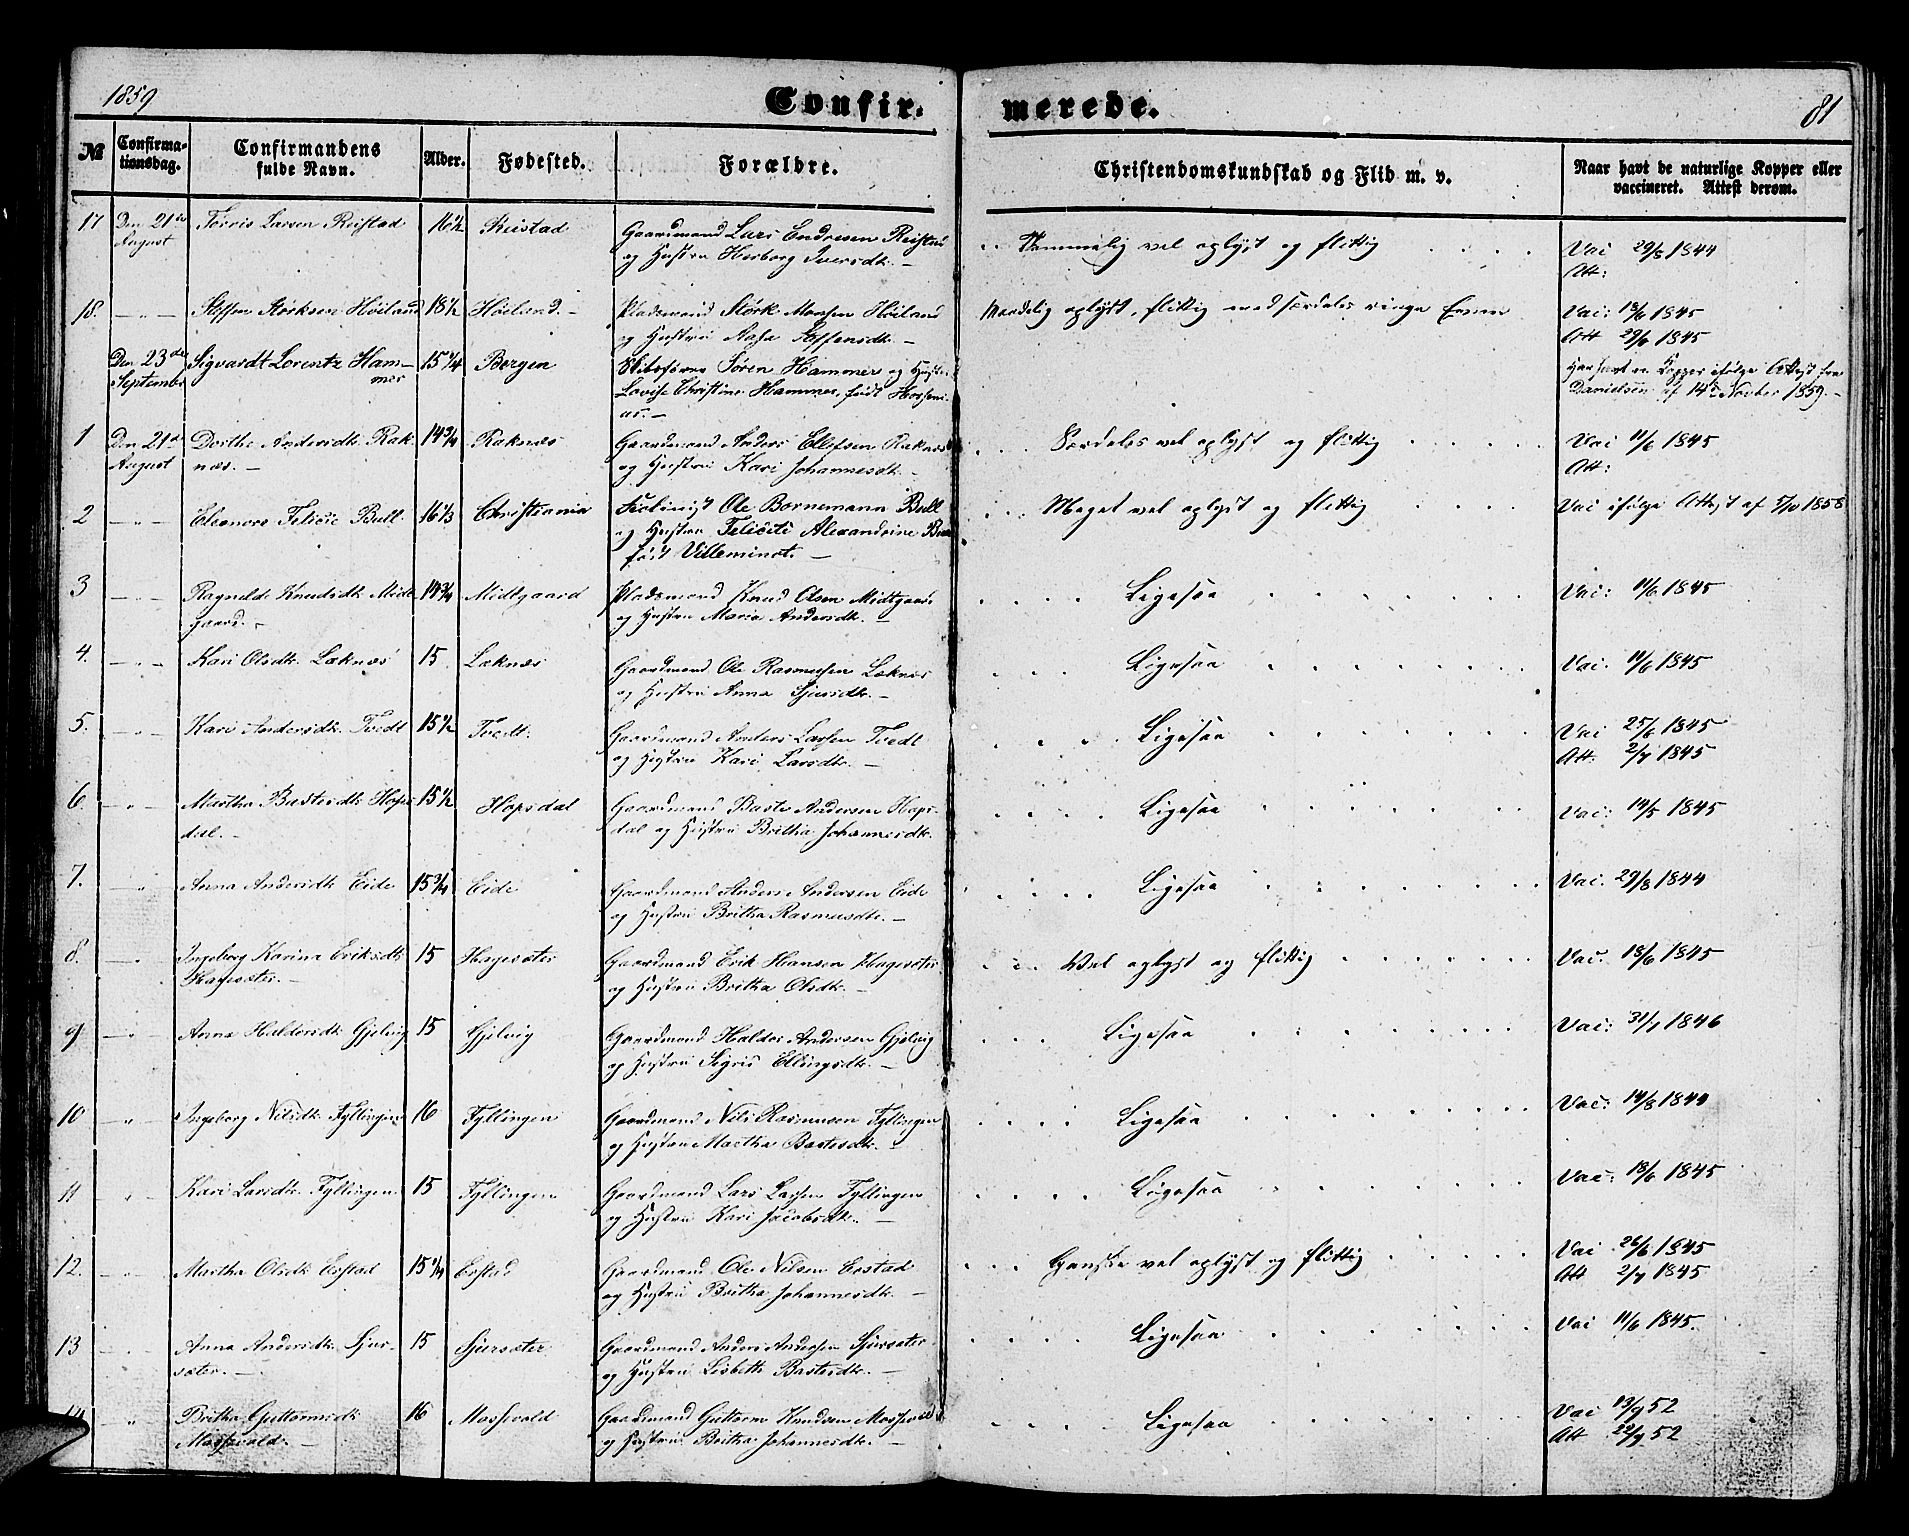 1859
Confir. merede.
81
№ Confirma-tionsdag. Confirmandens fulde Navn. Alder. Fødested. Forældre. Christendomskundskab og Flid m. v. Naar havt de naturlige Kopper eller vaccineret. Attest derom.
17 Den 21de August Larsen Reistad 16½ Reistad Gaardmand Lars Endresen Reistad Temmelig vel oplyst og flittig Vac 29/8 1844
og Hustru Herborg Iversdtr. — Att:
18. — " — Steffen Størksen Høiland 18½ Høiland. — Pladsmand Størk Monsen Høiland Maadelig oplyst, flittig med særdeles ringe Evner Vac: 18/6 1845
og Hustru Aasa Steffensdtr. — Att 29/6 1845
Den 23de September Sigvardt Lorentz Ham-mer 15¼ Bergen Skibsfører Søren Hammer og Hustru
Lovise Christine Hammer, født
Kopper ifølge Attest fra
Danielsen af 14de Novber 1859. —
1 Den 21de August Dorthe Andersdtr. Rak-næs. — 14¾ Raknæs Gaardmand Anders Ellefsen Raknæs Særdeles vel oplyst og flittig Vac 11/6 1845
og Hustru Kari Johannesdtr. — Att:
2 — " — Eleonore Felicie Bull. 16⅓ Christiania Ole Bornemann Bull Meget vel oplyst og flittig Vac ifølge Attest af 5/10 1858
og Hustru Felicité Alexandrine Bull
født Villeminot. —
3 — " — Ragnilde Knudsdtr. Midt-gaard. — 14¾ Midtgaard Pladsmand Knud Olsen Midtgaard Ligesaa Vac: 11/6 1845
og Hustru Maria Andersdtr. —
4. — " — Kari Olsdtr. Læknæs 15 Læknæs Gaardmand Ole Rasmussen Læknæs Ligesaa Vac. 11/6 1845
og Hustru Anna Sjursdtr. —
5. — " — Kari Andersdtr. Tvedt 15½ Tvedt. Gaardmand Anders Larsen Tvedt Ligesaa Vac 25/6 1845
og Hustru Kari Larsdtr. — Att. 2/7 1845
6. — " — Martha Bastesdtr. Hops-dal. — 15½ Hopsdal Gaardmand Baste Andersen Hops-Ligesaa Vac: 14/5 1845
dal og Hustru Britha Johannesdtr.
7. — " — Anna Andersdtr. Eide 15¾ Eide Gaardmand Anders Andersen Eide Ligesaa Vac. 29/8 1844
og Hustru Britha Rasmusdtr. —
8. — " — Ingeborg Karina Eriksdtr. Hagesæter. — 15 Hagesæter Gaardmand Erik Hansen Hagesæter Vel oplyst og flittig Vac: 18/6 1845
og Hustru Britha Olsdtr. —
9 — " — Anna Haldorsdtr. Gjelvig 15 Gjelvig Gaardmand Haldor Andersen Gjelvig Ligesaa Vac: 31/1 1846
og Hustru Sigrid Ellingsdtr. —
10 — " — Ingeborg Nilsdtr. Fyllingen 16 Fyllingen Gaardmand Nils Rasmussen Fyllingen Ligesaa Vac: 14/8 1844
og Hustru Martha Bastesdtr.
11 — " — Kari Larsdtr. Fyllingen 15 Fyllingen Gaardmand Lars Larsen Fyllingen Ligesaa Vac: 18/6 1845
og Hustru Kari Jacobsdtr. —
12. — " — Martha Olsdtr. Erstad 15¼ Erstad Gaardmand Ole Nilsen Erstad Ganske vel oplyst og flittig Vac 26/6 1845
og Hustru Britha Johannesdtr. — Att 2/7 1845
13 — " — Anna Andersdtr. Sjur-sæter. — 15 Sjursæter Gaardmand Anders Andersen Sjursæter Ligesaa Vac 11/6 1845.
og Hustru Lisbeth Bastesdtr. —
14 " Britha Guttormsdtr. Mossevold. — 16 Mossevold Gaardmand Guttorm Knudsen Mossevold Ligesaa Vac 13/9 52
og Hustru Britha Johannesdtr. — Att 22/9 52